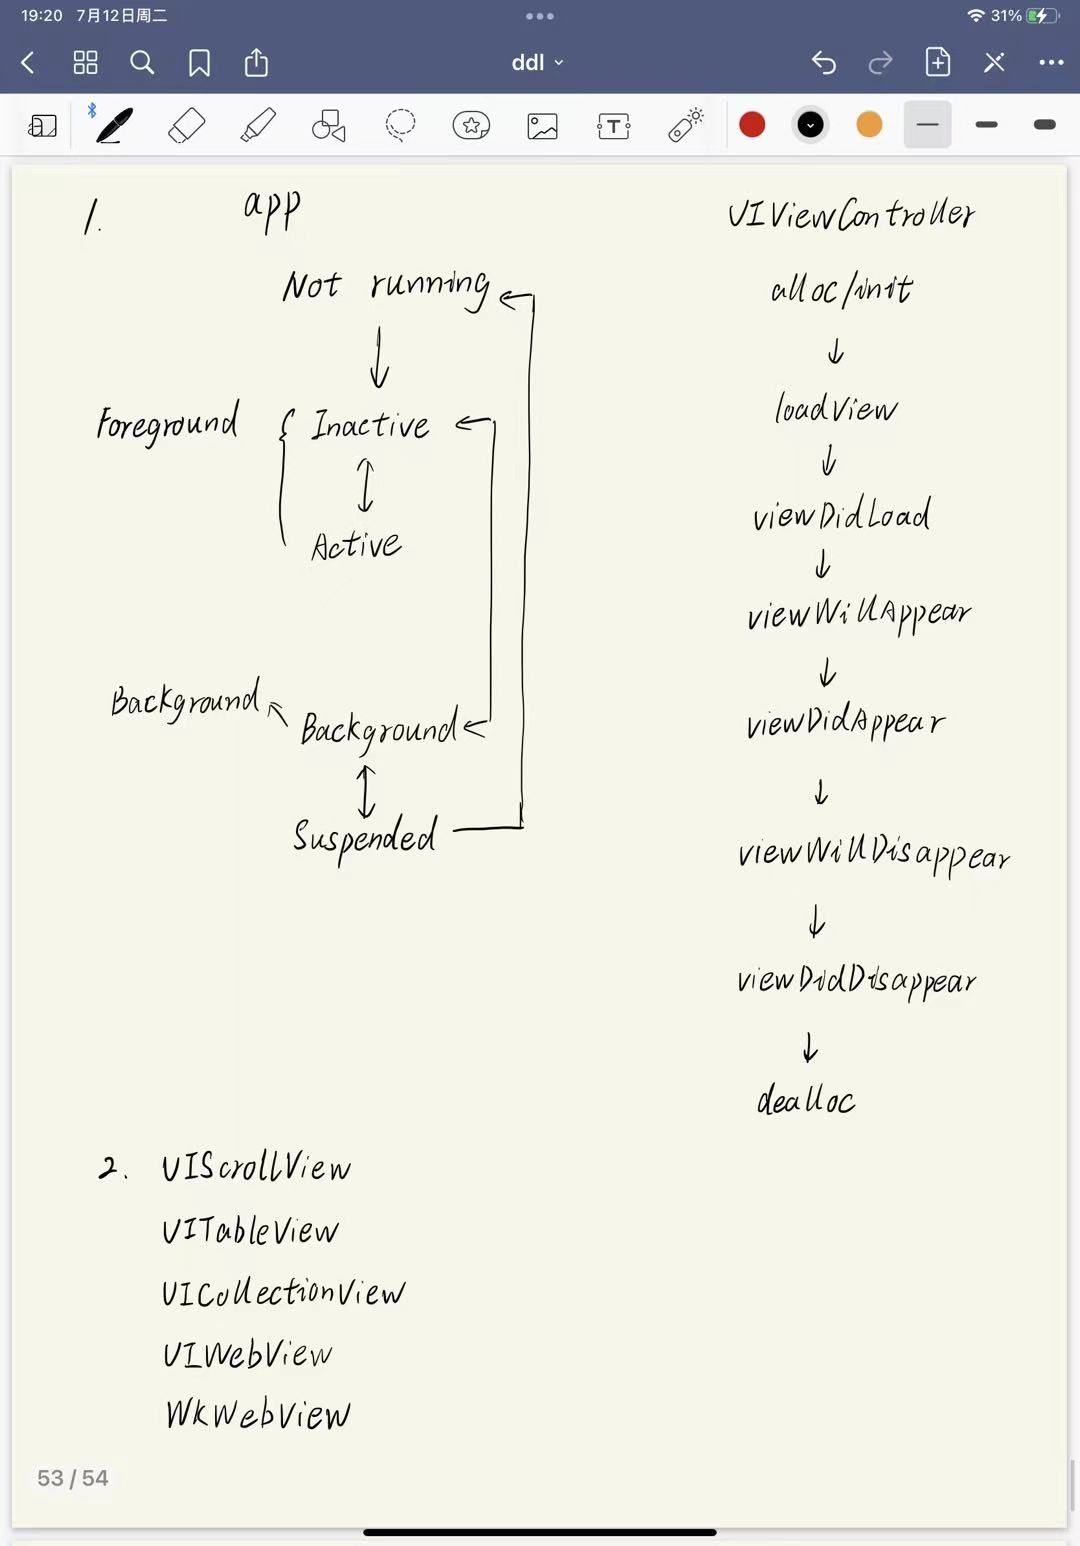 19:20 7月12日周二
31%
ddl
T
1. app
Not running
Foreground { Inactive
Active
Background
Background
Suspended
UIViewController
alloc/init
loadView
viewDidLoad
viewWillAppear
viewDidAppear
viewWillDisappear
viewDidDisappear
dealloc
2. UIScrollView
UITableView
UICollectionView
UIWebView
WkWebView
53 / 54